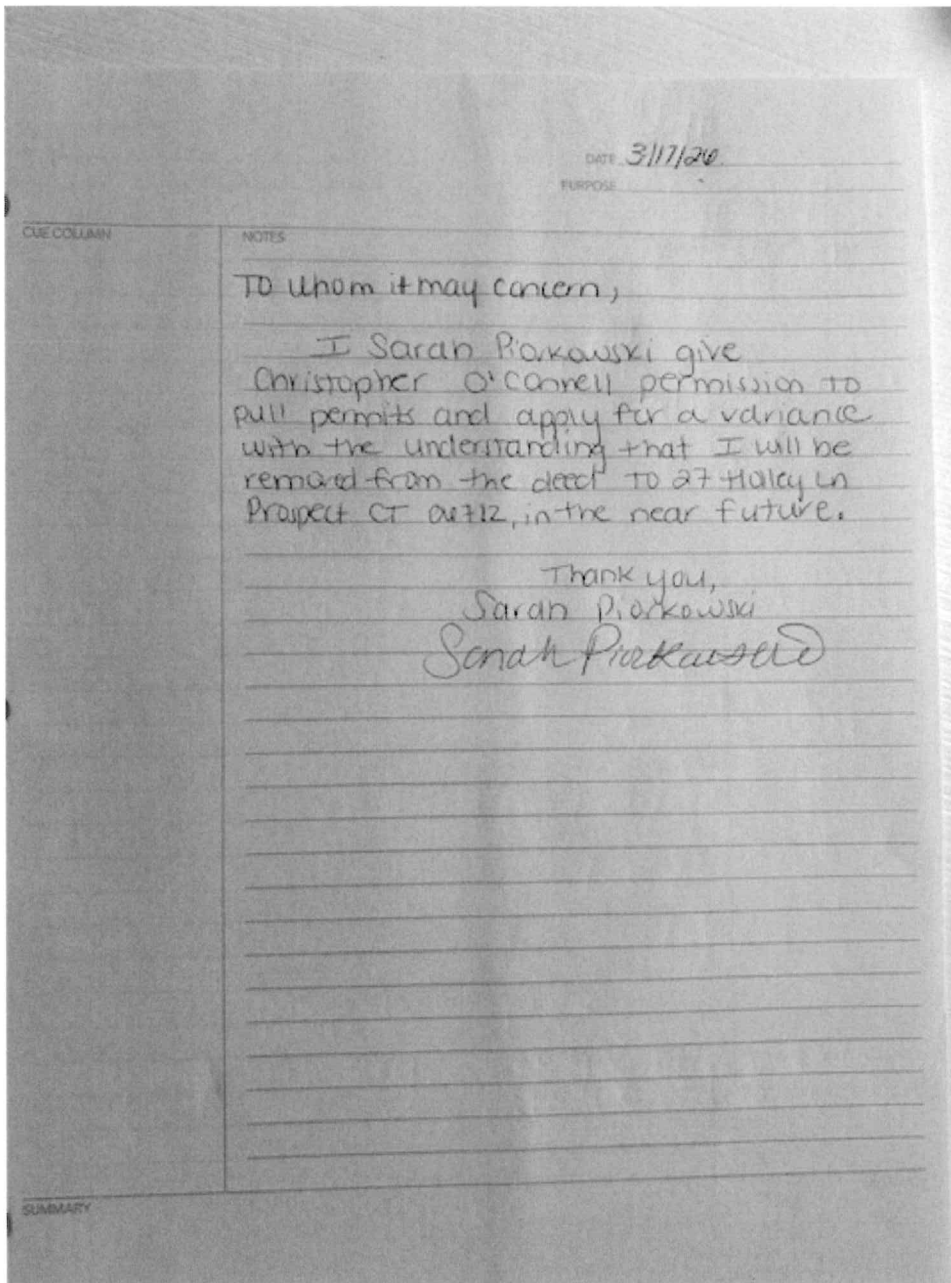 DATE 3/17/26
PURPOSE
CUE COLUMN
NOTES
To whom it may concern,
I Sarah Piorkowski give
Christopher O'Connell permission to
pull permits and apply for a variance
with the understanding that I will be
removed from the deed to 27 Haley Ln
Prospect CT 06712, in the near future.
Thank you,
Sarah Piorkowski
Sarah Piorkowski
SUMMARY